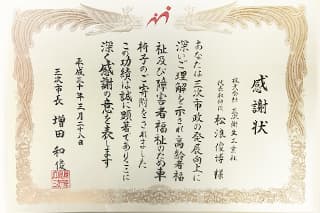 感謝状
株式会社 三次衛生工業社
代表取締役 松浪俊博 様
あなたは三次市政の発展向上に
深いご理解を示され高齢者福
祉及び障害者福祉のため車
椅子のご寄附をされました
この功績は誠に顕著でありここに
深く感謝の意を表します
平成三十年三月二十八日
三次市長 増田和俊